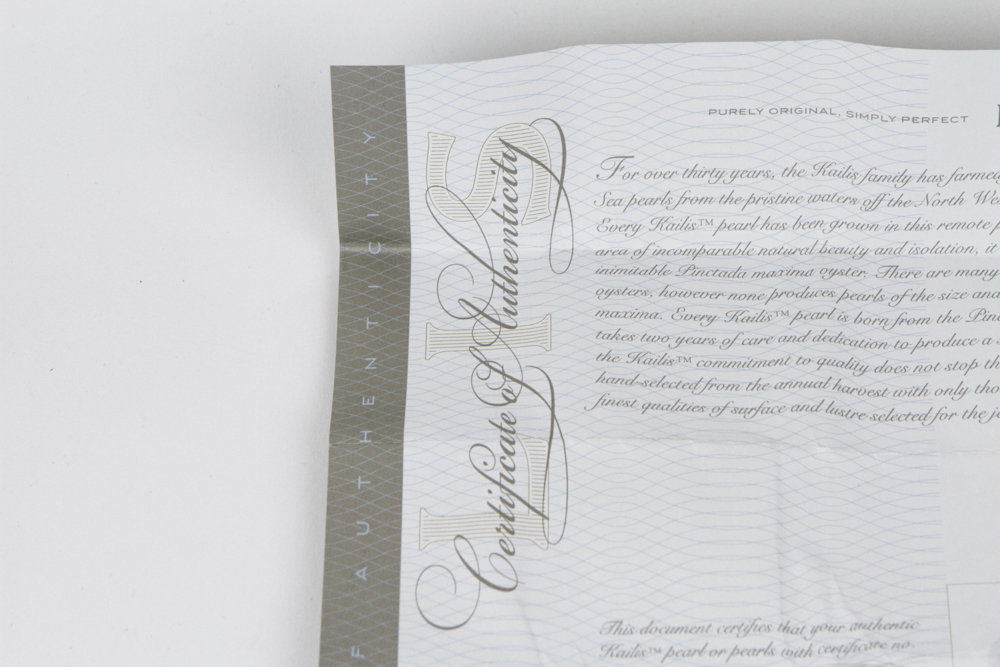 F AUTHENTICITY
LIS
Certificate of Authenticity
PURELY ORIGINAL, SIMPLY PERFECT
For over thirty years, the Kailis family has farmed
Sea pearls from the pristine waters off the North We
Every Kailis™ pearl has been grown in this remote
area of incomparable natural beauty and isolation, it
inimitable Pinctada maxima oyster. There are many
oysters, however none produces pearls of the size and
maxima. Every Kailis™ pearl is born from the Pin
takes two years of care and dedication to produce a
the Kailis™ commitment to quality does not stop th
hand-selected from the annual harvest with only tho
finest qualities of surface and lustre selected for the je
This document certifies that your authentic
Kailis™ pearl or pearls with certificate no.